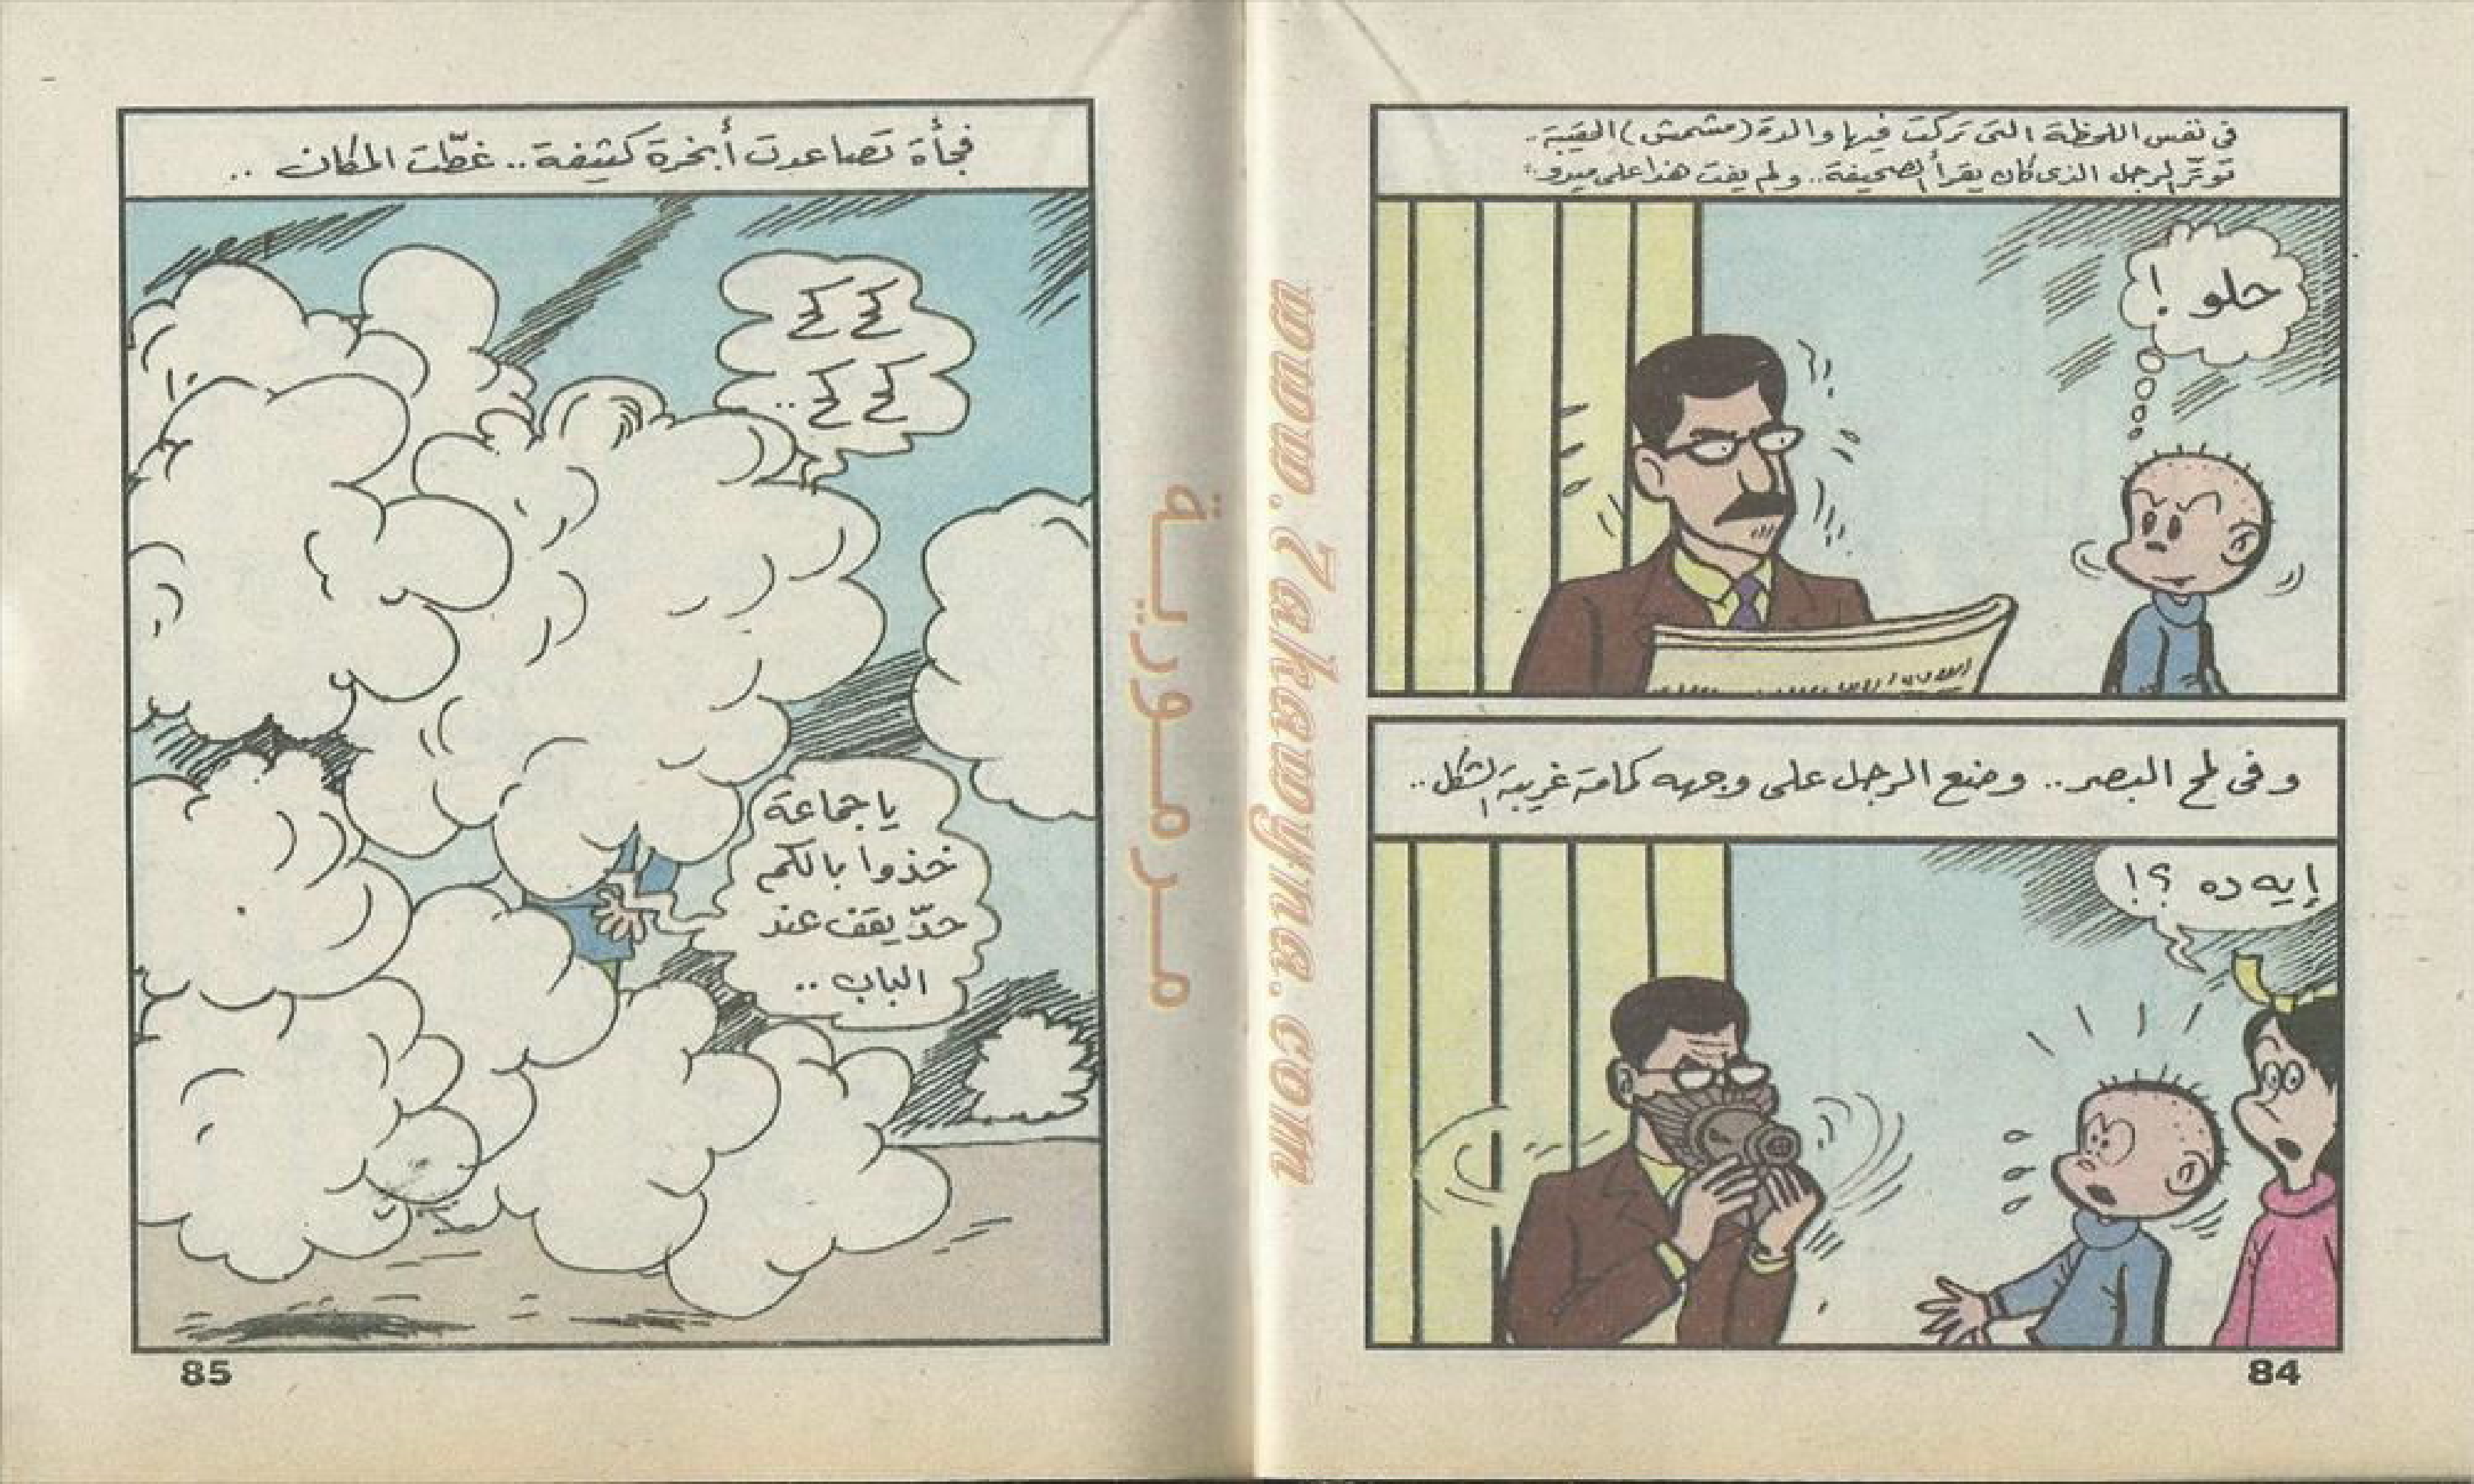 في نفس اللحظة التى تركت فيها والدة (مشمش) الحقيبة..
توتّر الرجل الذى كان يقرأ الصحيفة.. ولم يفت هذا على ميدو:
حلو !
وفى لمح البصر.. وضع الرجل على وجهه كمامة غريبة الشكل..
إيه ده ؟!
84
فجأة تصاعدت أبخرة كثيفة.. غطّت المكان ..
كح كح
كح كح ..
يا جماعة
خذوا بالكم
حدّ يقف عند
الباب ..
85
مرمورية
www.7akawyna.com